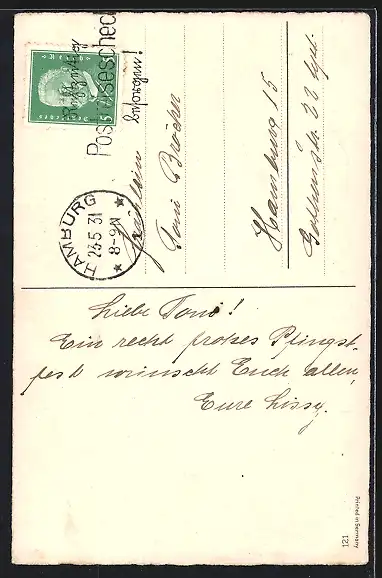 Deutsches Reich
5
Postreisescheck
HAMBURG
23.5.31
8-9 N
Fräulein
Toni
Hamburg 15
Liebe Toni!
Ein recht frohes Pfingst-
fest wünscht Euch allen,
Eure Lissy.
121
Printed in Germany